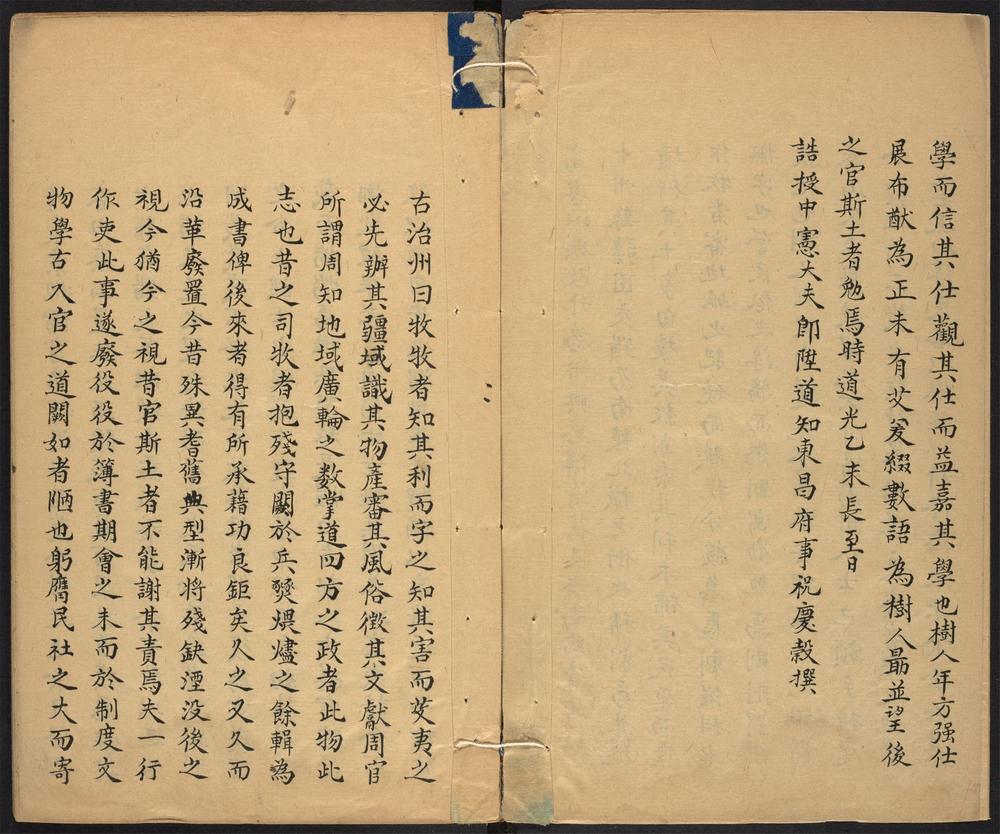 學而信其仕觀其仕而益嘉其學也樹人年方强仕
展布猷為正未有艾爰綴數語為樹人勗並望後
之官斯土者勉焉時道光乙未長至日
誥授中憲大夫卽陞道知東昌府事祝慶穀撰
古治州曰牧牧者知其利而字之知其害而芟夷之
必先辦其疆域識其物產審其風俗徵其文獻周官
所謂周知地域廣輪之数掌道四方之政者此物此
志也昔之司牧者抱殘守闕於兵燹煨燼之餘輯為
成書俾後來者得有所承藉功良鉅矣久之又久而
沿革廢置今昔殊異耆舊典型漸將殘缺湮没後之
視今猶今之視昔官斯土者不能謝其責焉夫一行
作吏此事遂廢役役於簿書期會之末而於制度文
物學古入官之道闕如者陋也躬膺民社之大而寄